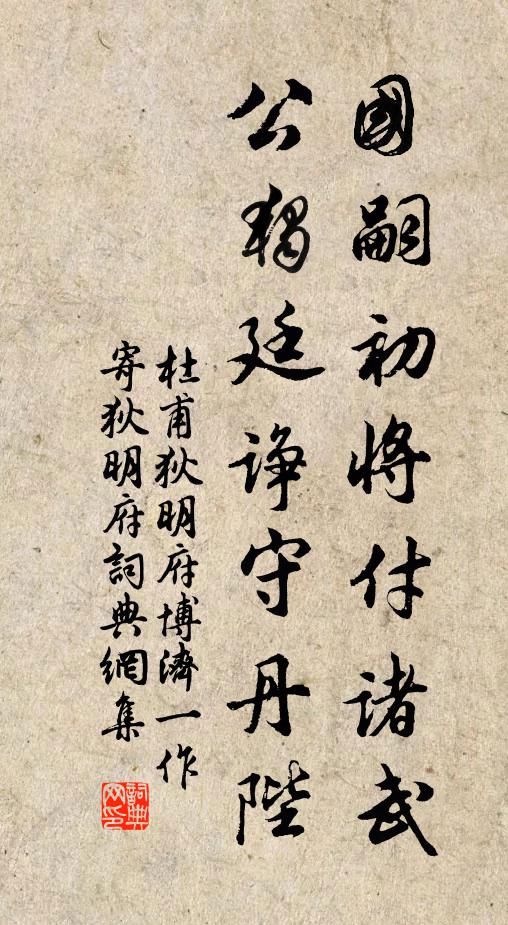 國嗣初將付諸武
公獨廷諍守丹陛
杜甫狄明府博濟一作
寄狄明府詞典網集
詞典
网印